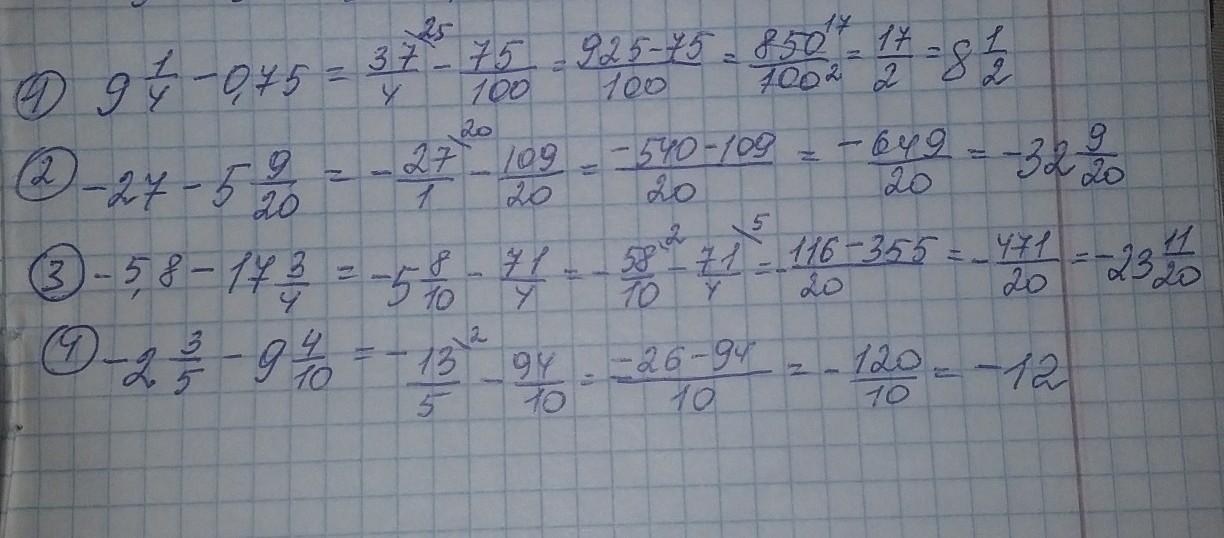 1) 9 1/4 - 0,75 = 37/4 \25 - 75/100 = 925-75/100 = 850/100 17/2 = 17/2 = 8 1/2
2) -27 - 5 9/20 = -27/1 \20 - 109/20 = -540-109/20 = -649/20 = -32 9/20
3) -5,8 - 17 3/4 = -5 8/10 - 71/4 = -58/10 \2 - 71/4 \5 = -116-355/20 = -471/20 = -23 11/20
4) -2 3/5 - 9 4/10 = -13/5 \2 - 94/10 = -26-94/10 = -120/10 = -12